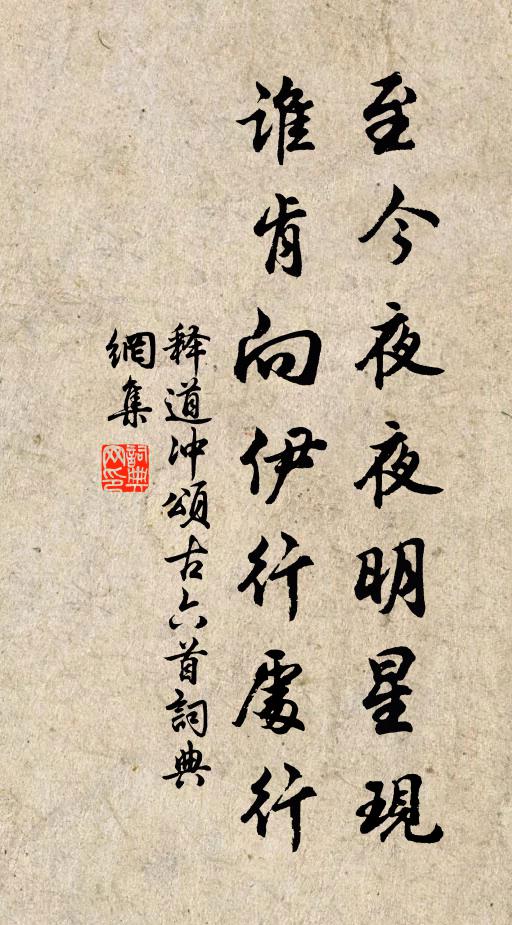 至今夜夜明星現
谁肯向伊行處行
释道冲頌古六首詞典
網集
詞典
网印